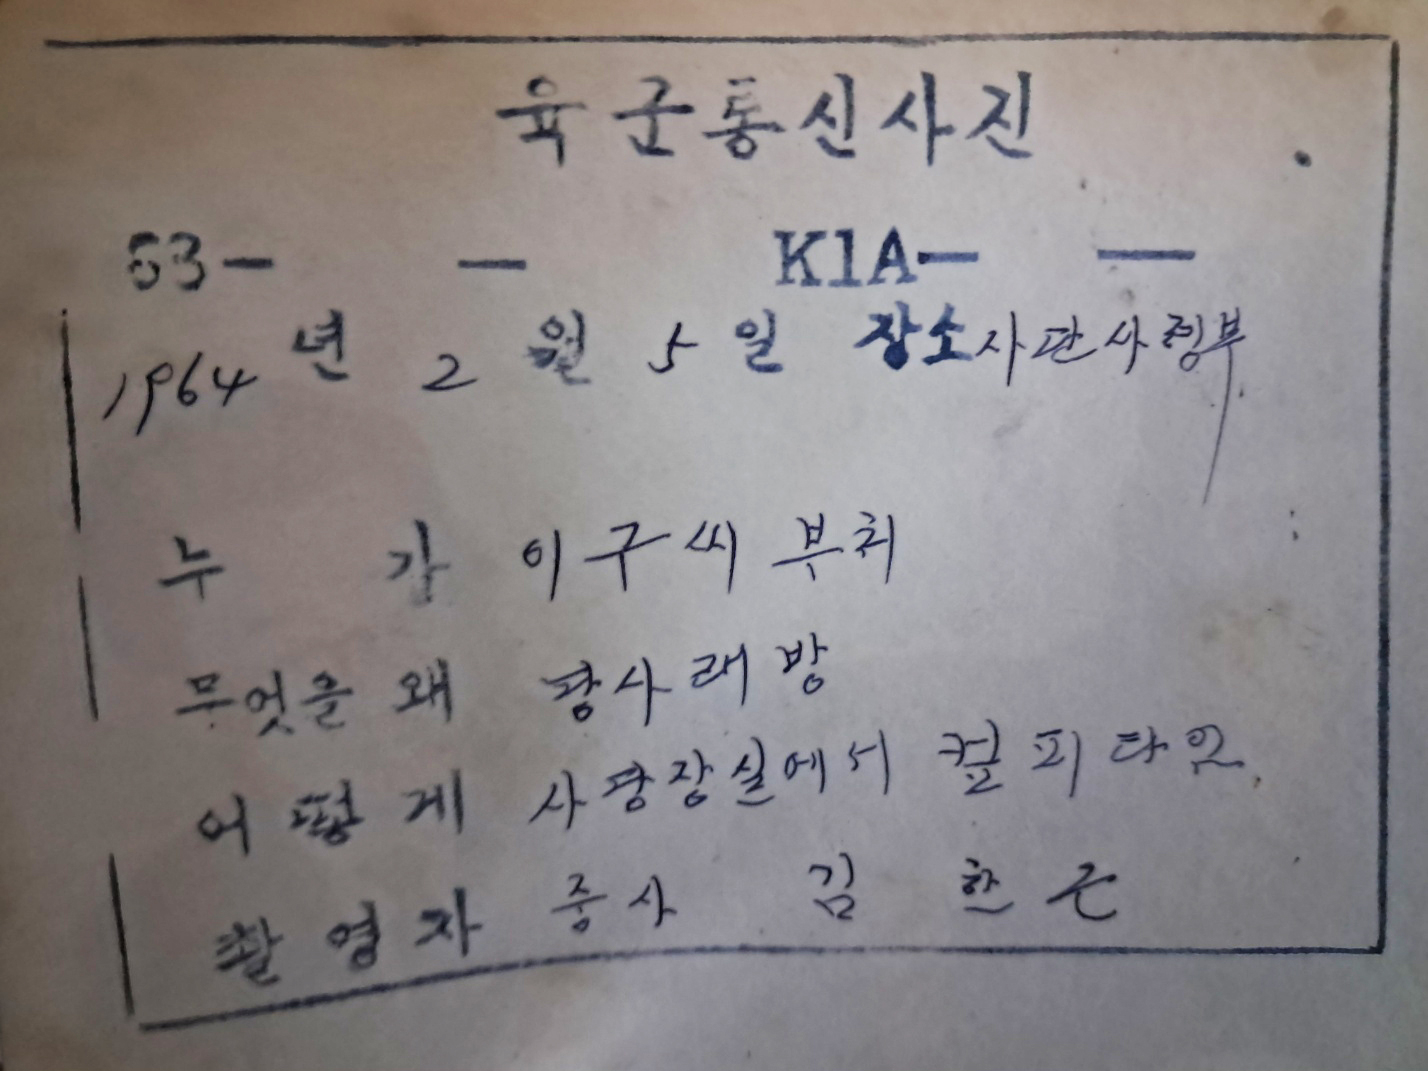 육군통신사진
53- - K1A- -
1964년 2월 5일 장소 사판사령부
누 가 이구씨 부처
무엇을 왜 당사래방
어떻게 사령장실에서 컾피타임
촬영자 중사 김한근